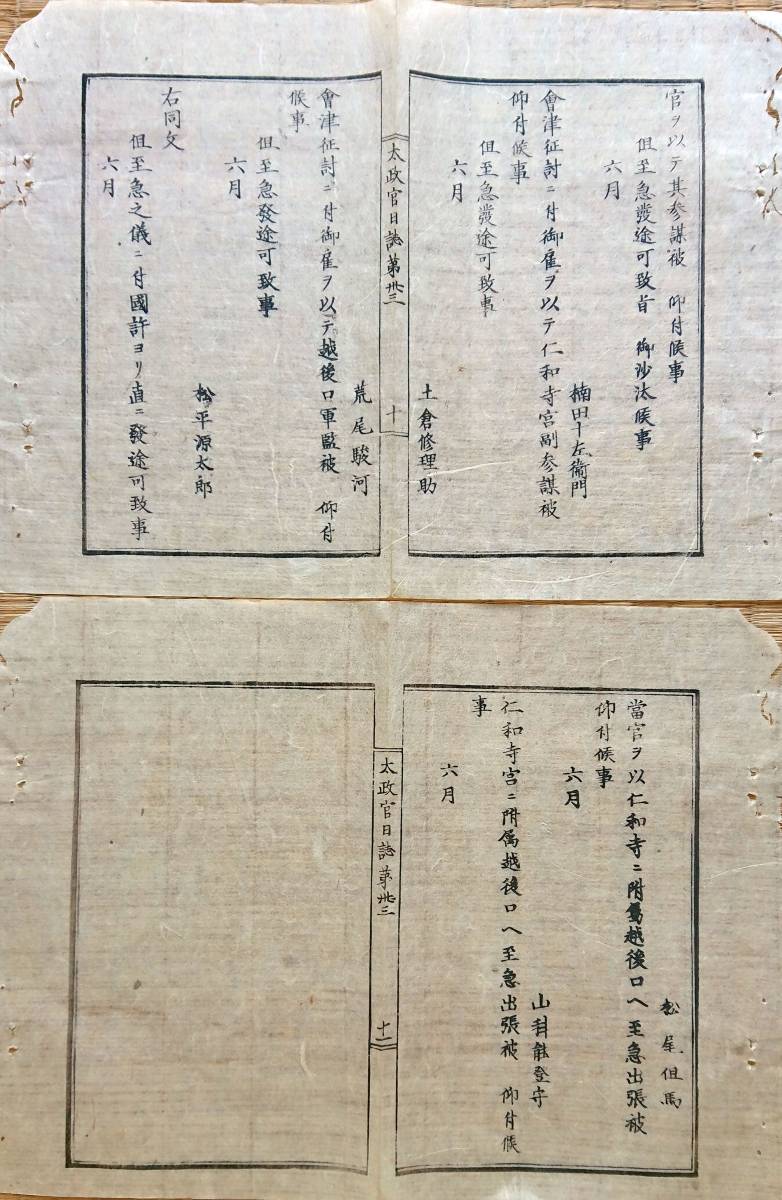 官ヲ以テ其参謀被 仰付候事
但至急發途可致旨 御沙汰候事
六月
楠田十左衞門
會津征討ニ付御雇ヲ以テ仁和寺宮副参謀被
仰付候事
但至急發途可致事
六月
土倉修理助
太政官日誌第卅三
十
荒尾駿河
會津征討ニ付御雇ヲ以テ越後口軍監被 仰付
候事
但至急發途可致事
六月
松平源太郎
右同文
但至急之儀ニ付國許ヨリ直ニ發途可致事
六月
松尾但馬
當官ヲ以仁和寺ニ附属越後口ヘ至急出張被
仰付候事
六月
山科能登守
仁和寺宮ニ附属越後口ヘ至急出張被 仰付候
事
六月
太政官日誌第卅三
十一